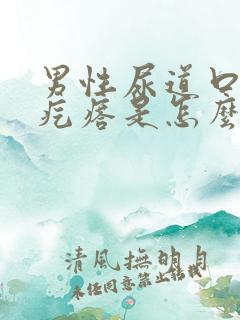 男性尿道口
疙瘩是怎麼
清風撫明月
未经同意禁止转载